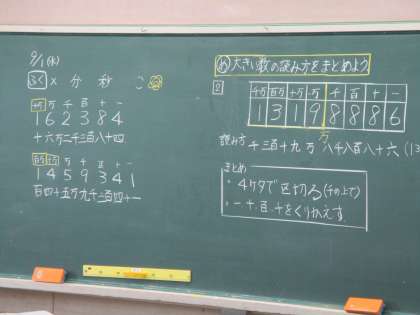 9/1(水)
ふく × 分 秒
十万 万 千 百 十 一
162384
十六万二千三百八十四
百万 十万 万 千 百 十 一
1459341
百四十五万九千三百四十一
め 大きい数の読み方をまとめよう
2
千万 百万 十万 一万 千 百 十 一
13198886
万
読み方 千三百十九万 八千八百八十六 (13
まとめ
・4ケタで区切る(千の上で)
・一、十、百、千をくりかえす。